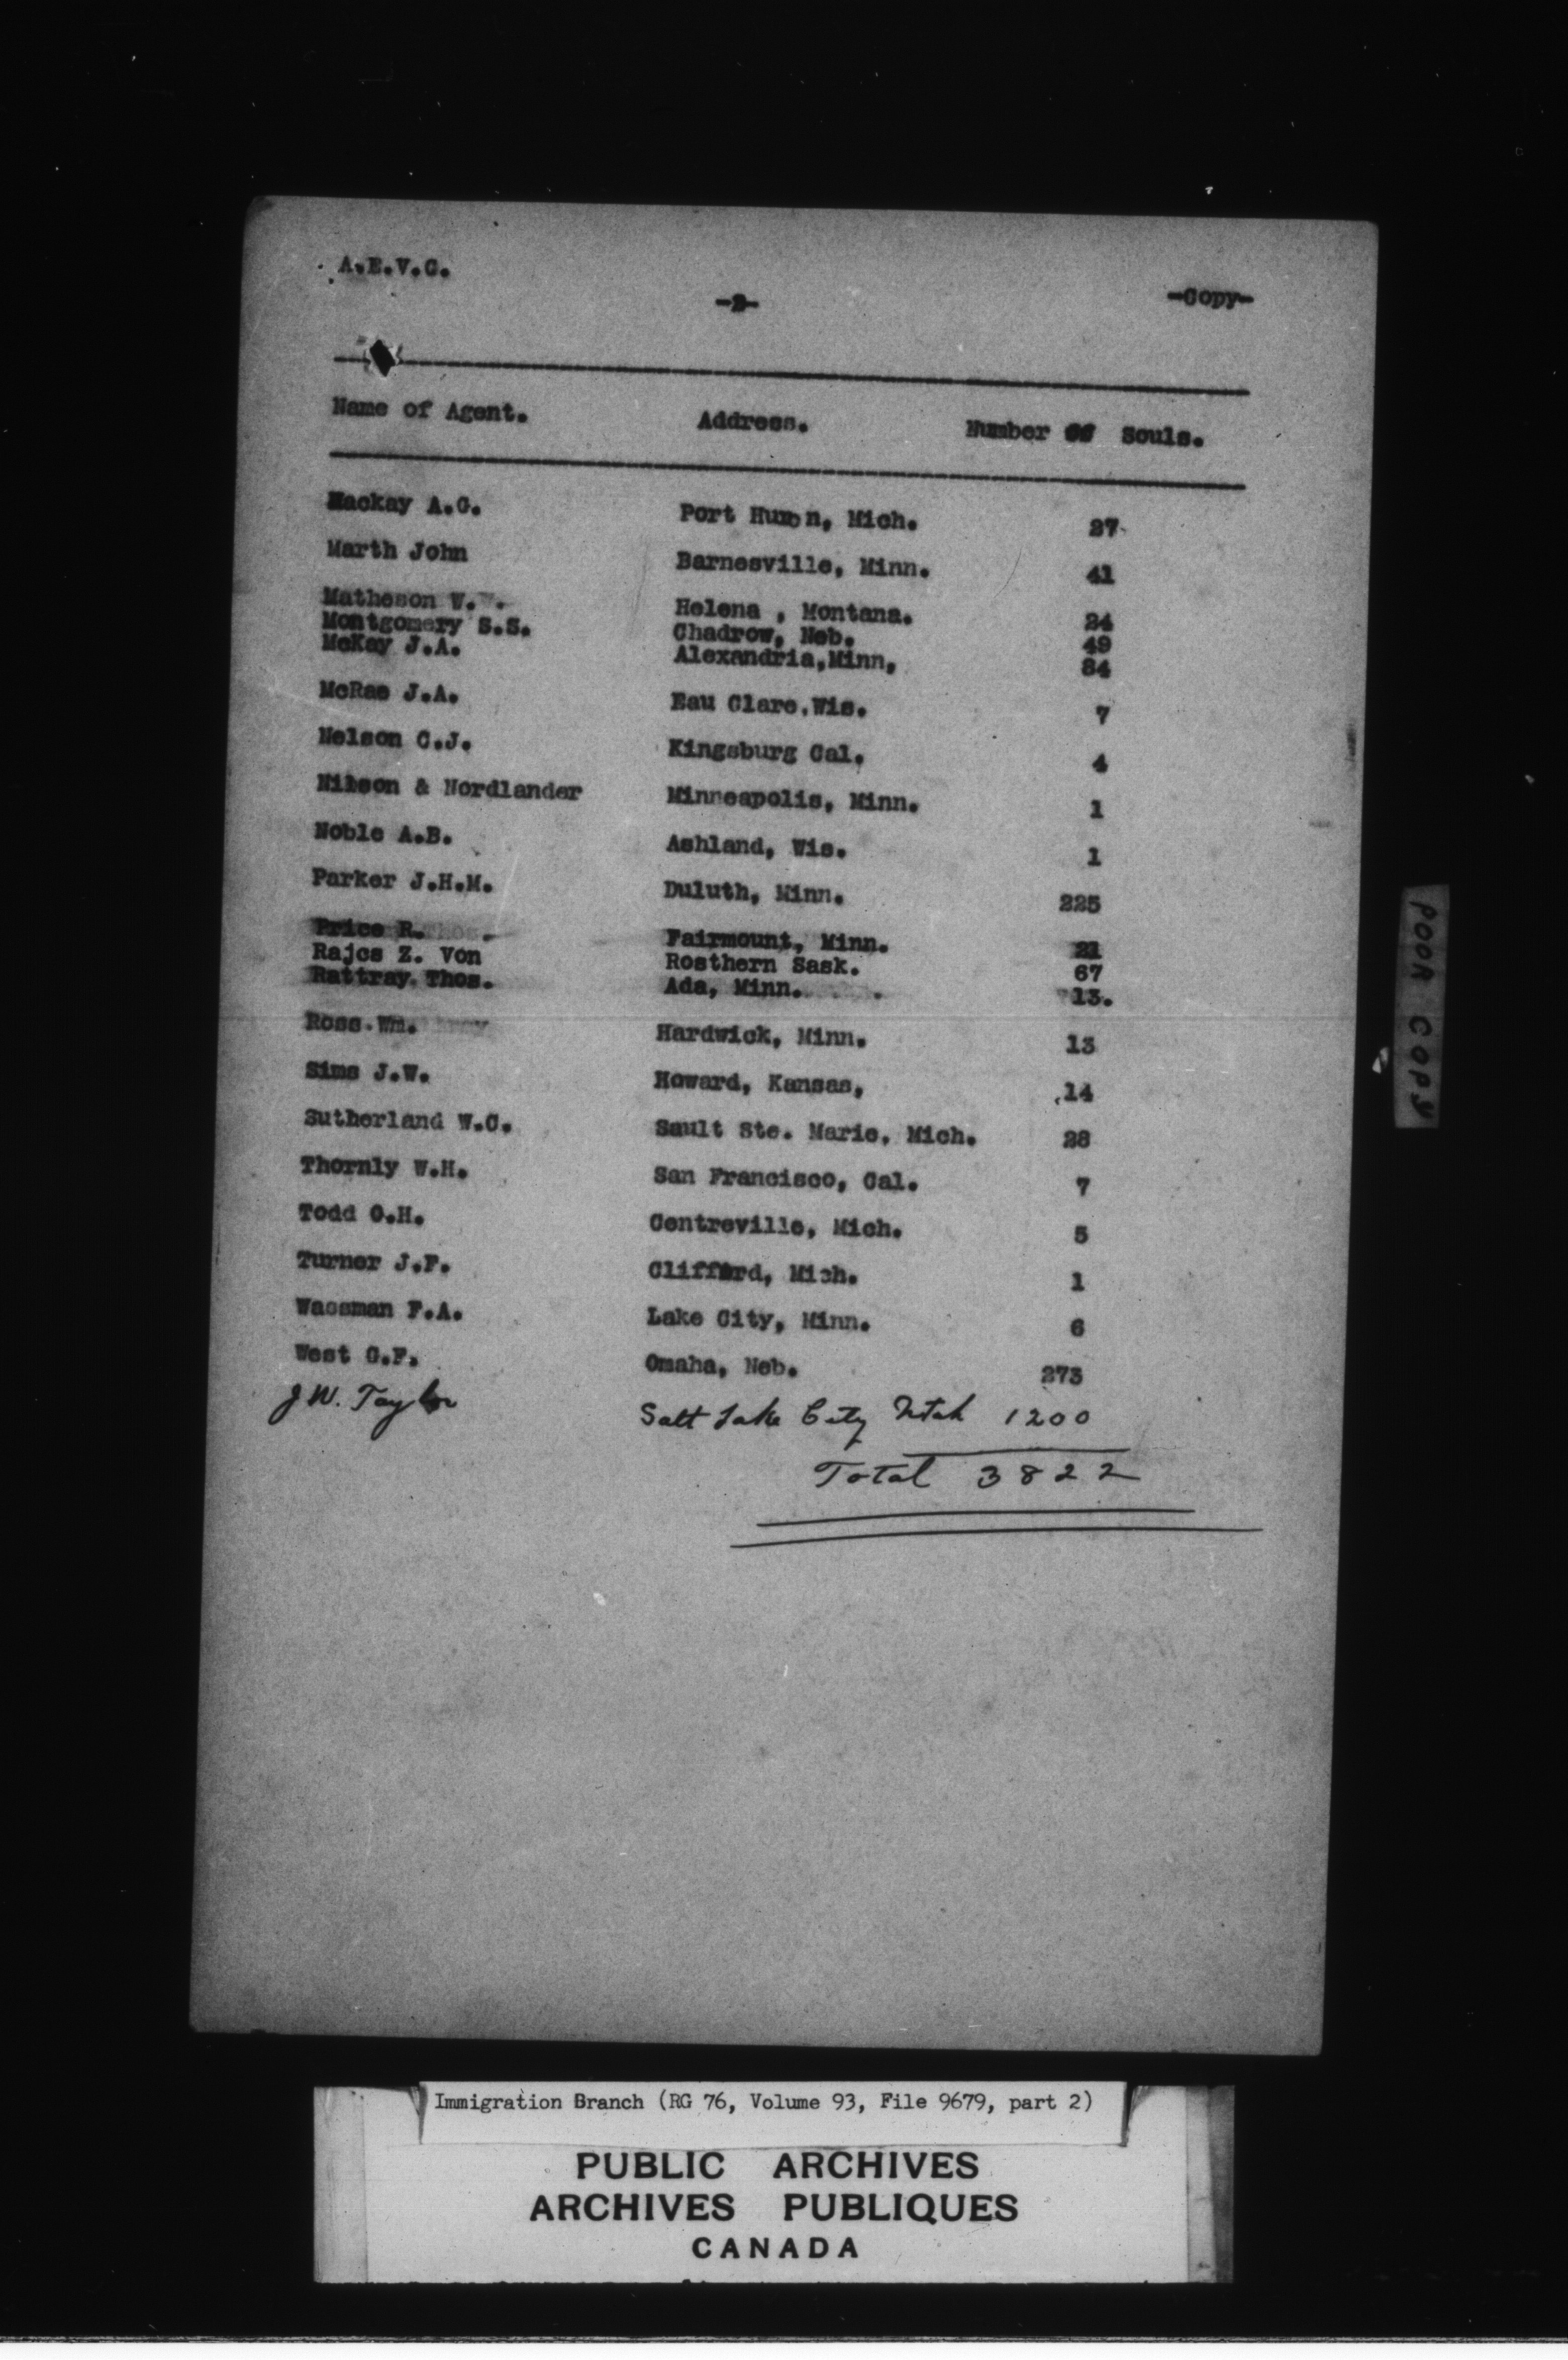 A.E.V.C.
-2-
-Copy-
Name of Agent. Address. Number of Souls.
Mackay A.C. Port Huron, Mich. 27
Marth John Barnesville, Minn. 41
Matheson W. Helena , Montana. 24
Montgomery S.S. Chadrow, Neb. 49
McKay J.A. Alexandria,Minn, 84
McRae J.A. Eau Clare.Wis. 7
Nelson C.J. Kingsburg Cal. 4
Nilson & Nordlander Minneapolis, Minn. 1
Noble A.B. Ashland, Wis. 1
Parker J.H.M. Duluth, Minn. 225
Price R. Fairmount, Minn. 21
Rajcs Z. Von Rosthern Sask. 67
Rattray Thos. Ada, Minn. 13.
Ross Wm. Hardwick, Minn. 13
Sims J.W. Howard, Kansas, 14
Sutherland W.C. Sault Ste. Marie, Mich. 28
Thornly W.H. San Francisco, Cal. 7
Todd C.H. Centreville, Mich. 5
Turner J.F. Clifford, Mich. 1
Wassman F.A. Lake City, Minn. 6
West C.F. Omaha, Neb. 273
J W. Taylor Salt Lake City Utah 1200
Total 3822
POOR COPY
Immigration Branch (RG 76, Volume 93, File 9679, part 2)
PUBLIC ARCHIVES
ARCHIVES PUBLIQUES
CANADA